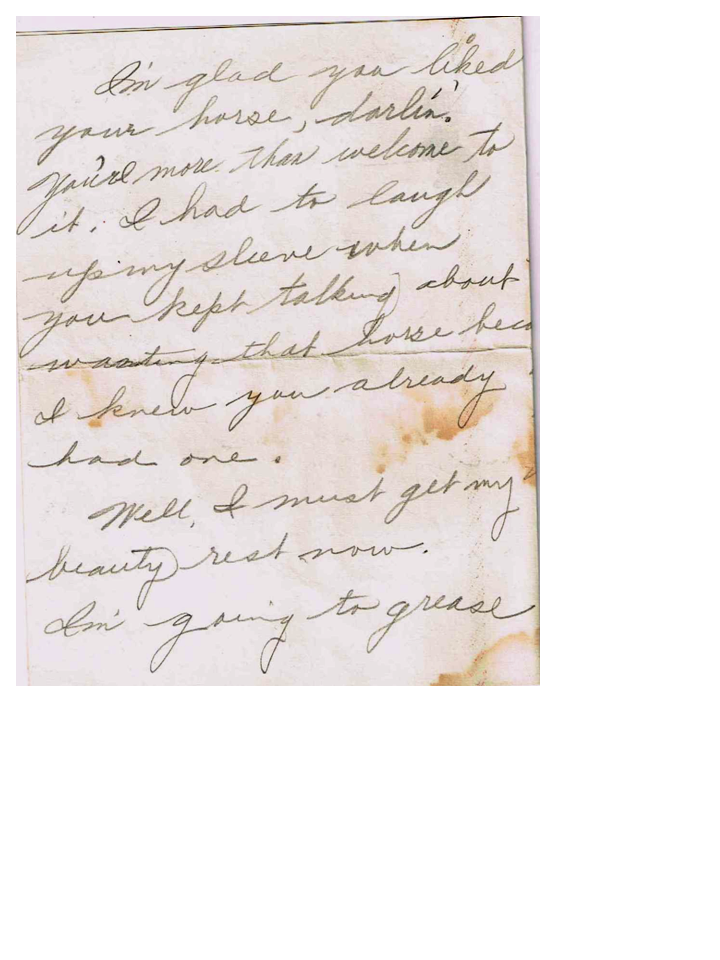 I'm glad you liked
your horse, darlin'.
You're more than welcome to
it. I had to laugh
up my sleeve when
you kept talking about
wanting that horse beca
I knew you already
had one.
Well, I must get my
beauty rest now.
I'm going to grease